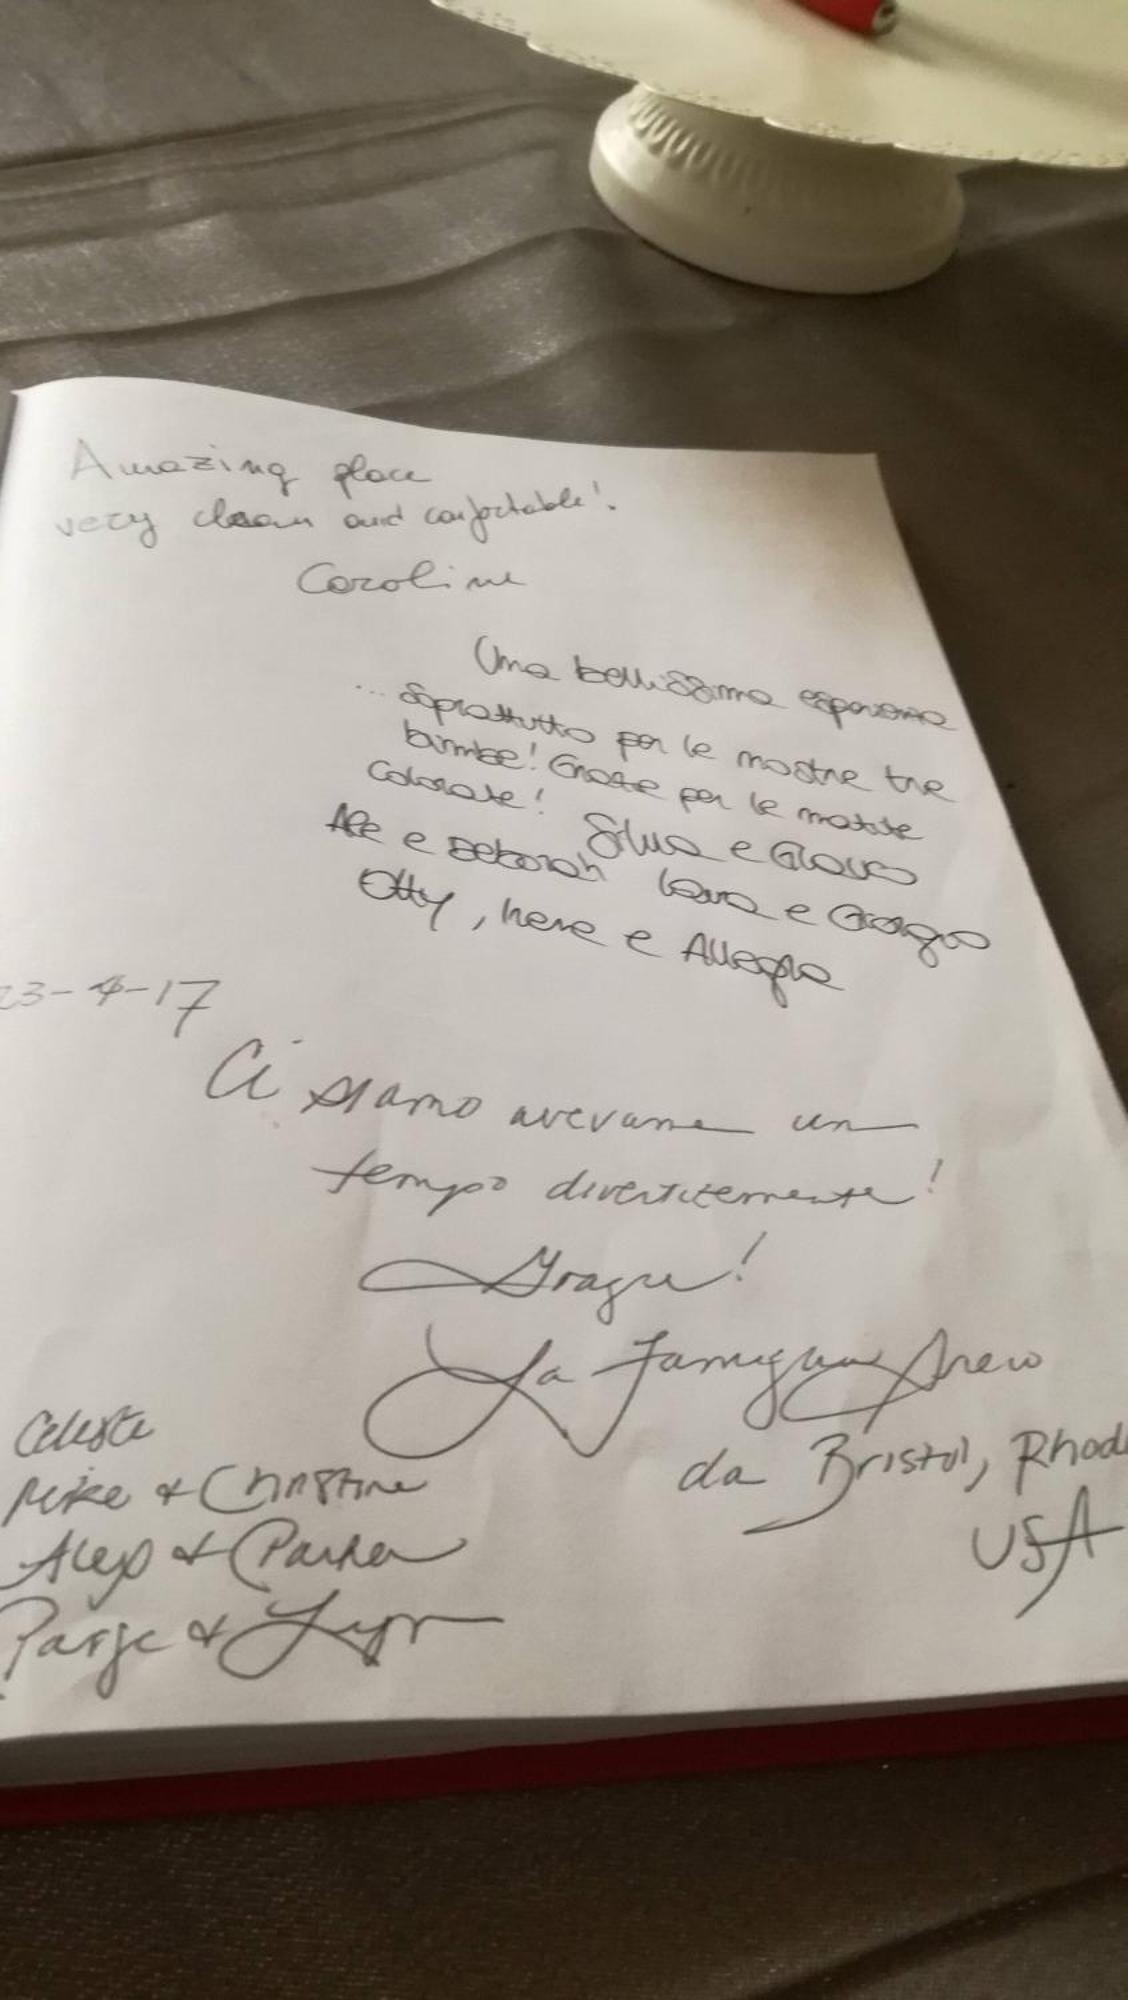 Amazing place
very clean and confortable!
Caroline
Una bellissima esperienza
... soprattutto per le nostre tre
bimbe! Grazie per le matite
colorate! Silvia e Glauco
Ale e Deborah Lara e Giorgio
Otty, Nene e Allegra
23-4-17
Ci siamo avevamo un
tempo divertitemente!
Grazie!
La Famiglia
da Bristol, Rhod
USA
Celeste
Mike & Christine
Alex & Parker
Paige &